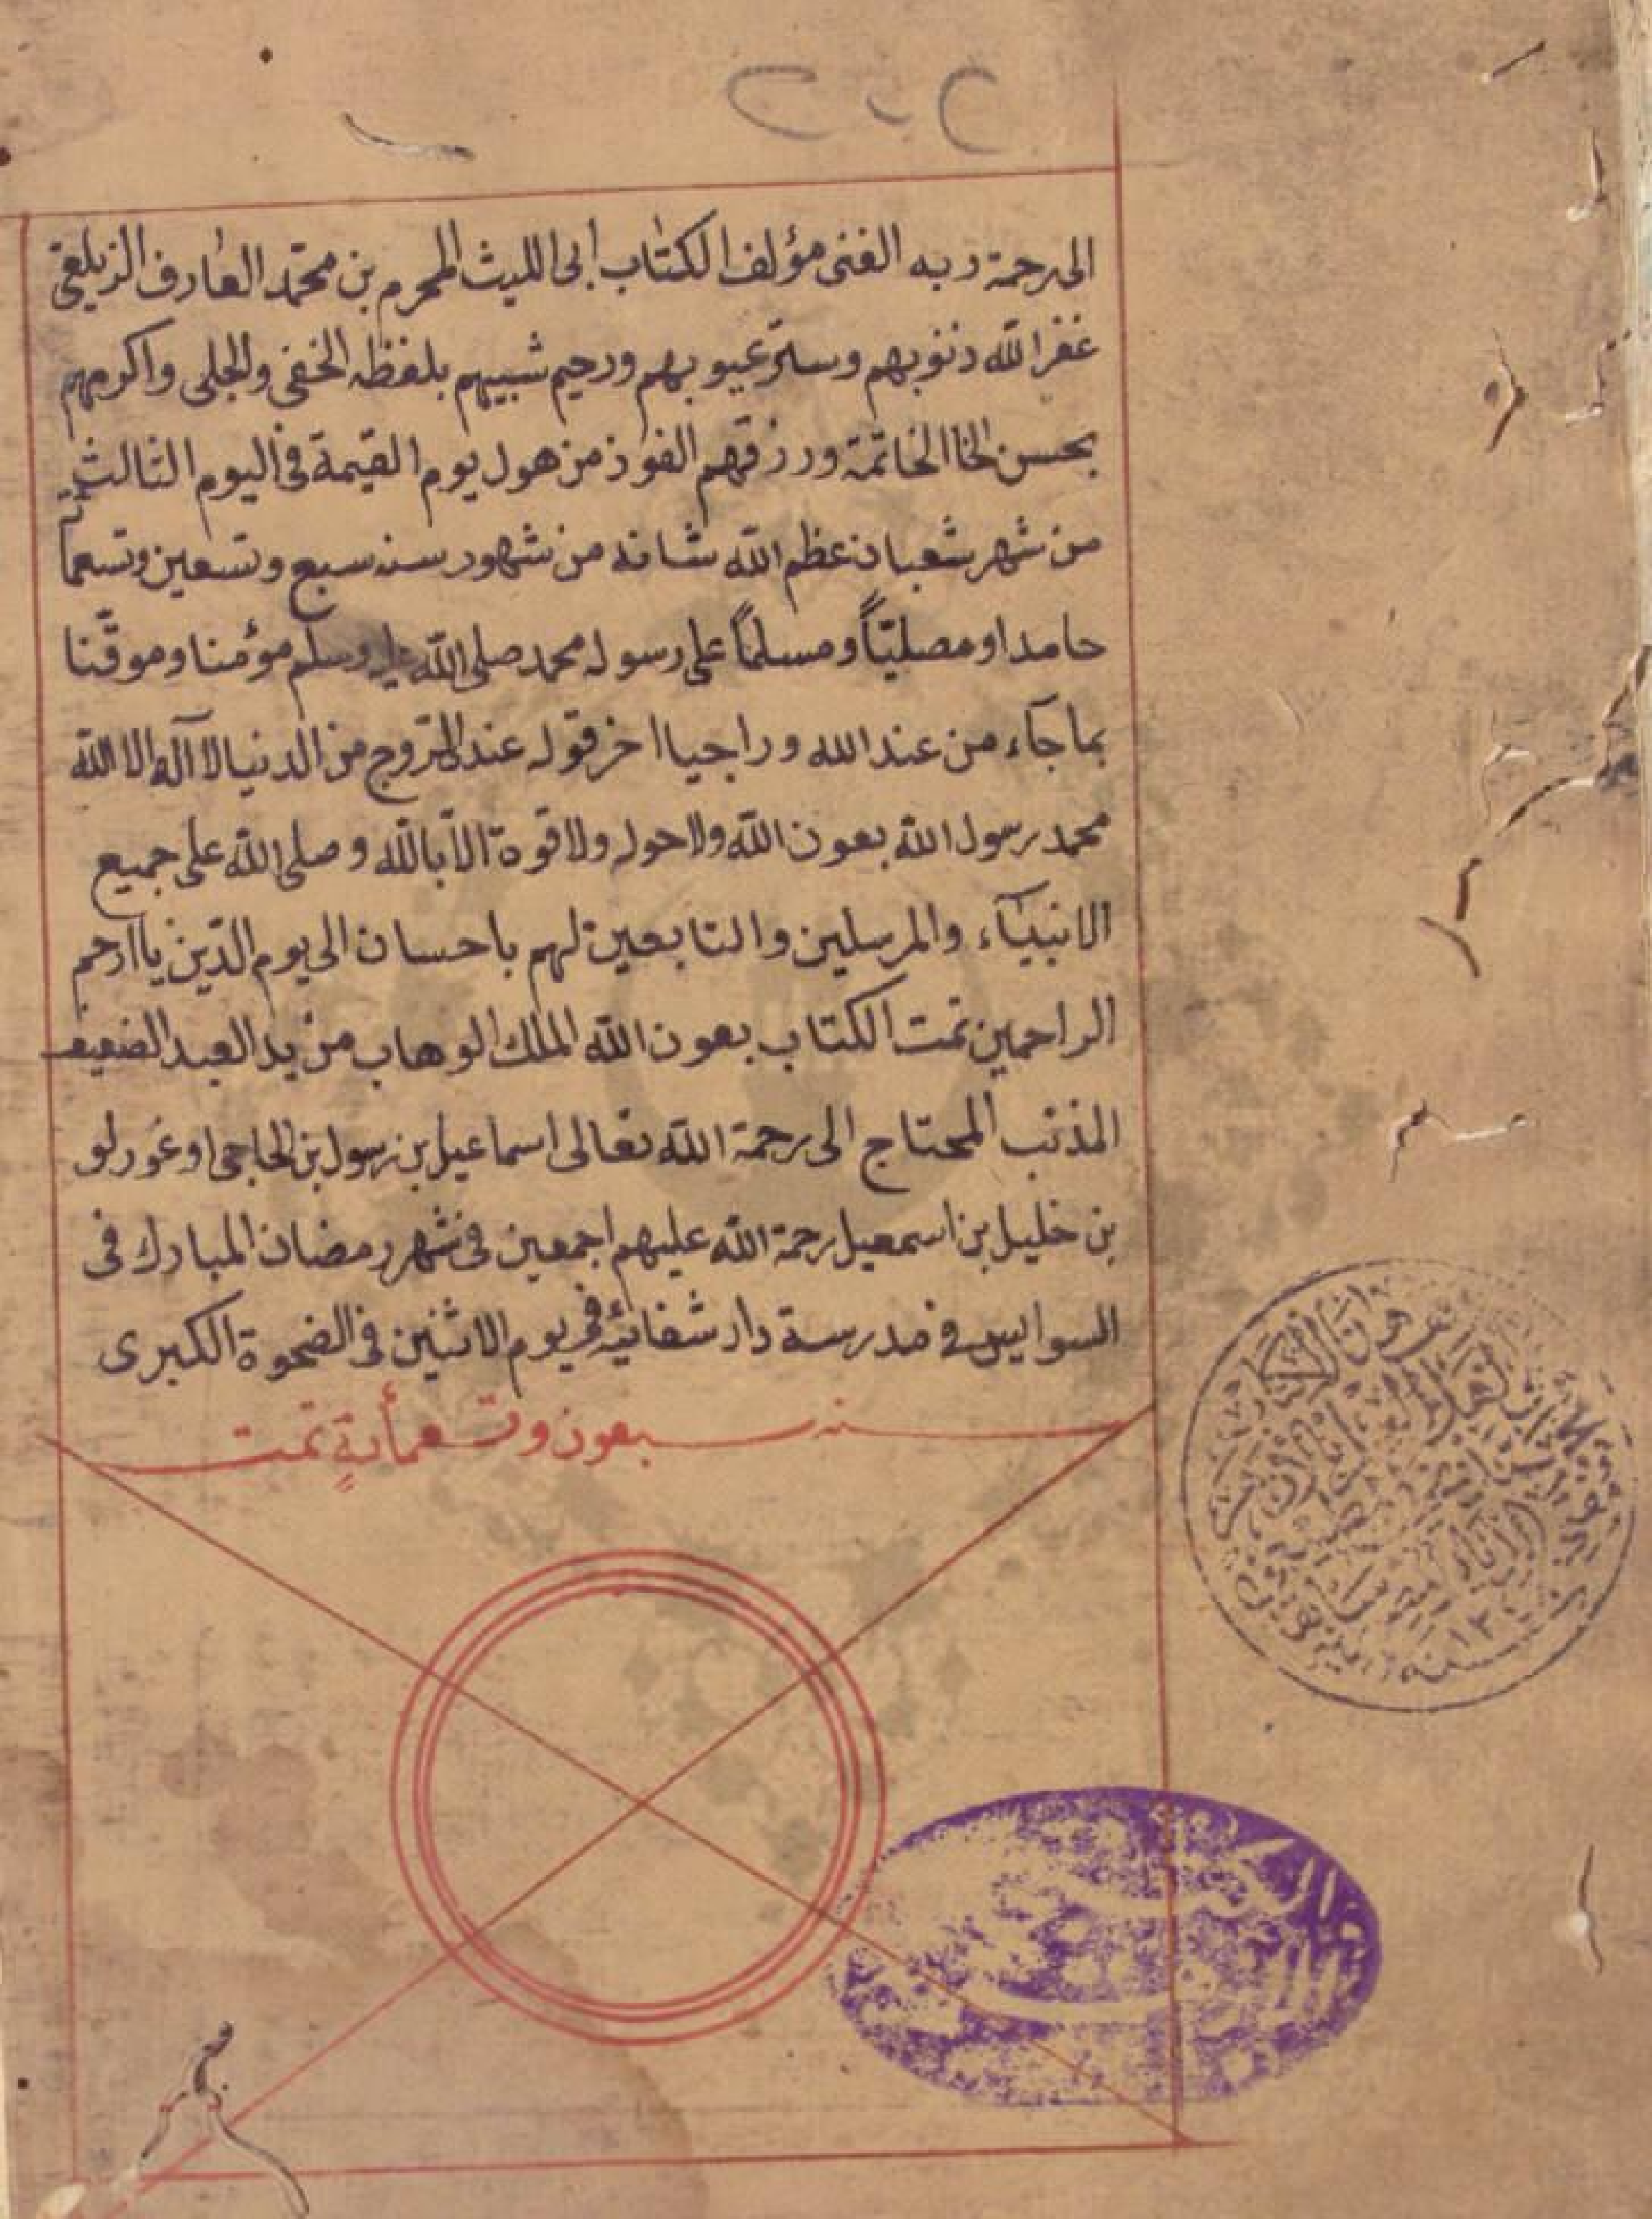 الى رحمة ربه الغنى مؤلف الكتاب ابى الليث المحرم بن محمّد العارف الزيلعى
غفر الله ذنوبهم وستر عيوبهم ورحيم شبيهم بلفظه الخفى والجلى واكرمهم
بحسن الخا الخاتمة ورزقهم الفوز من هول يوم القيمة فى اليوم الثالث
من شهر شعبان عظم الله شانه من شهور سنه سبع وتسعين وتسعمأة
حامدا ومصليّاً ومسلماً على رسوله محمد صلى الله عليه وسلم مؤمنا وموقّنا
بما جآء من عند الله وراجيا اخر قوله عند الخروج من الدنيا لآ آله الا الله
محمد رسول الله بعون الله ولا حول ولا قوة الاّ بالله وصلى الله على جميع
الانبيآء والمرسلين والتابعين لهم باحسان الى يوم الدّين يا ارحم
الراحمين تمت الكتاب بعون الله الملك الوهاب من يد العبد الضعيف
المذنب المحتاج الى رحمة الله تعالى اسماعيل بن رسول بن الحاجى اوغورلو
بن خليل بن اسمعيل رحمة الله عليهم اجمعين فى شهر رمضان المبارك فى
السوايس فى مدرسة دار شفائيّه فى يوم الاثنين فى الضحوة الكبرى
سنه سبعون وتسعمأية تمت